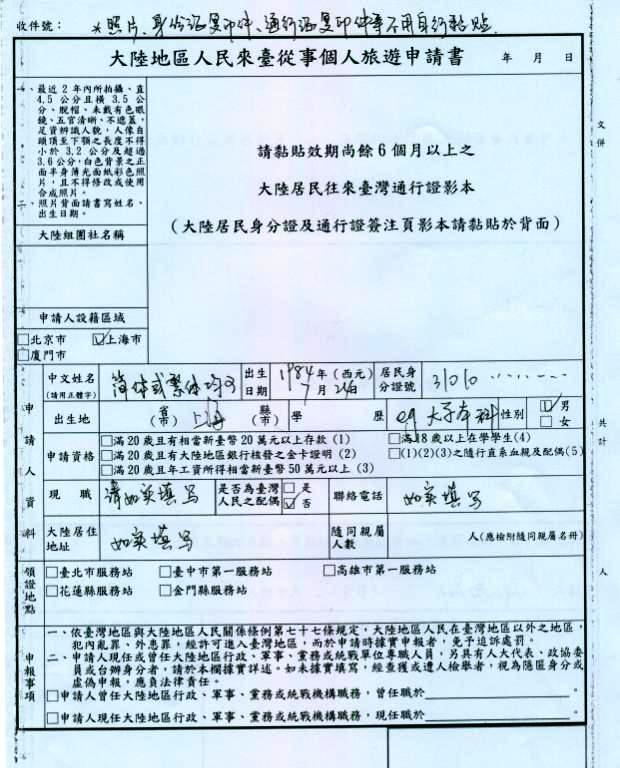 收件號：
*照片、身份证复印件、通行证复印件等不用自行黏贴
大陸地區人民來臺從事個人旅遊申請書 年 月 日
一、最近2年內所拍攝、直
4.5公分且橫3.5公
分、脫帽、未戴有色眼
鏡、五官清晰、不遮蓋，
足資辨識人貌，人像自
頭頂至下顎之長度不得
小於3.2公分及超過
3.6公分，白色背景之正
面半身薄光面紙彩色照
片，且不得修改或使用
合成照片。
二、照片背面請書寫姓名、
出生日期。
請黏貼效期尚餘6個月以上之
大陸居民往來臺灣通行證影本
（大陸居民身分證及通行證簽注頁影本請黏貼於背面）
大陸組團社名稱
申請人設籍區域
□北京市 ☑上海市
□廈門市
申請人資料
中文姓名
(請用正體字)
简体或繁体均可
出生日期
1984年（西元）
7月24日
居民身分證號
31010........
出生地
省(市) 上海 縣(市)
學歷 eg 大学本科
性別 ☑男
□女
申請資格
□滿20歲且有相當新臺幣20萬元以上存款(1) □滿18歲以上在學學生(4)
□滿20歲且有大陸地區銀行核發之金卡證明(2) □(1)(2)(3)之隨行直系血親及配偶(5)
□滿20歲且年工資所得相當新臺幣50萬元以上(3)
現職 请如实填写
是否為臺灣人民之配偶 □是
☑否
聯絡電話 如实填写
大陸居住地址 如实填写
隨同親屬人數 人(應檢附隨同親屬名冊)
領證地點
□臺北市服務站 □臺中市第一服務站 □高雄市第一服務站
□花蓮縣服務站 □金門縣服務站
申報事項
一、依臺灣地區與大陸地區人民關係條例第七十七條規定，大陸地區人民在臺灣地區以外之地區，
犯內亂罪、外患罪，經許可進入臺灣地區，而於申請時據實申報者，免予追訴處罰。
二、申請人現任或曾任大陸地區行政、軍事、黨務或統戰單位專職人員，另具有人大代表、政協委
員或台辦身分者，請於本欄據實詳述。如未據實填寫，經查獲或遭人檢舉者，視為隱匿身分或
虛偽申報，應負法律責任。
□申請人曾任大陸地區行政、軍事、黨務或統戰機構職務，曾任職於 。
□申請人現任大陸地區行政、軍事、黨務或統戰機構職務，現任職於 。
文
併
共
計
人